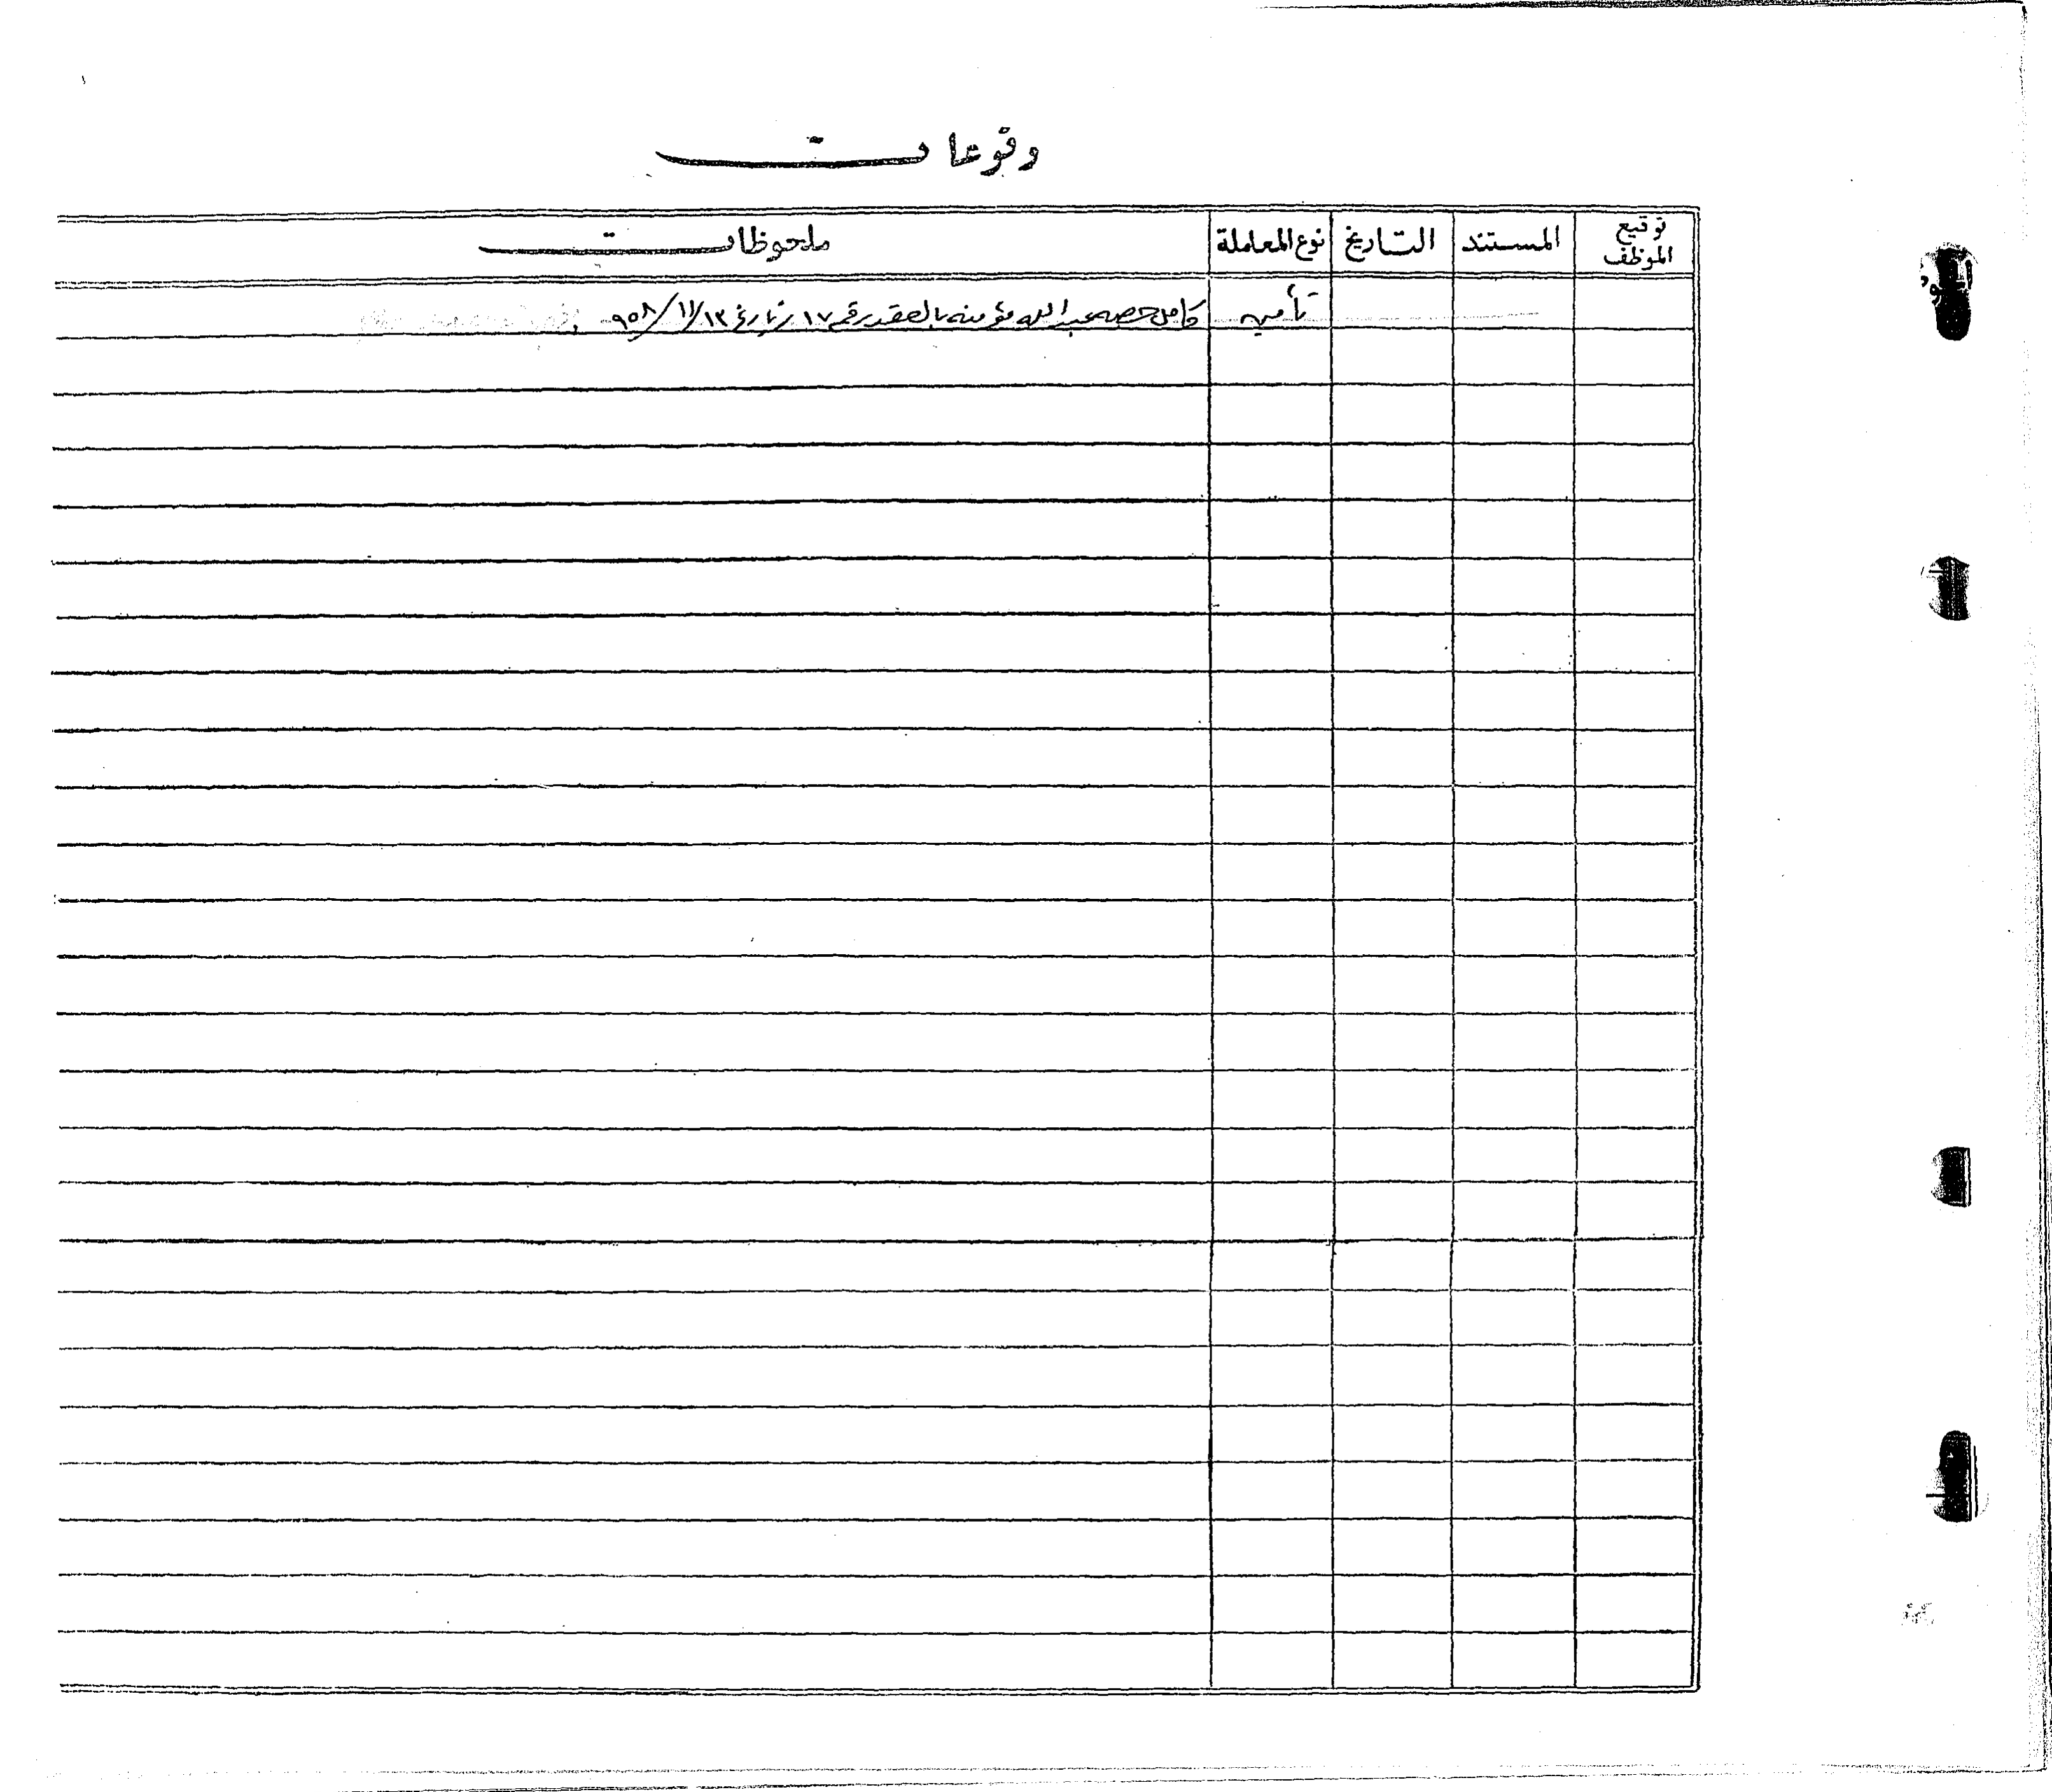 وقوعات
توقيع الموظف
المستند
التاريخ
نوع المعاملة
ملحوظات
تأمين
كامل حصه عبد الله مؤمنه بالعقد رقم ١٧ تاريخ ١٣/١١/٩٥٨